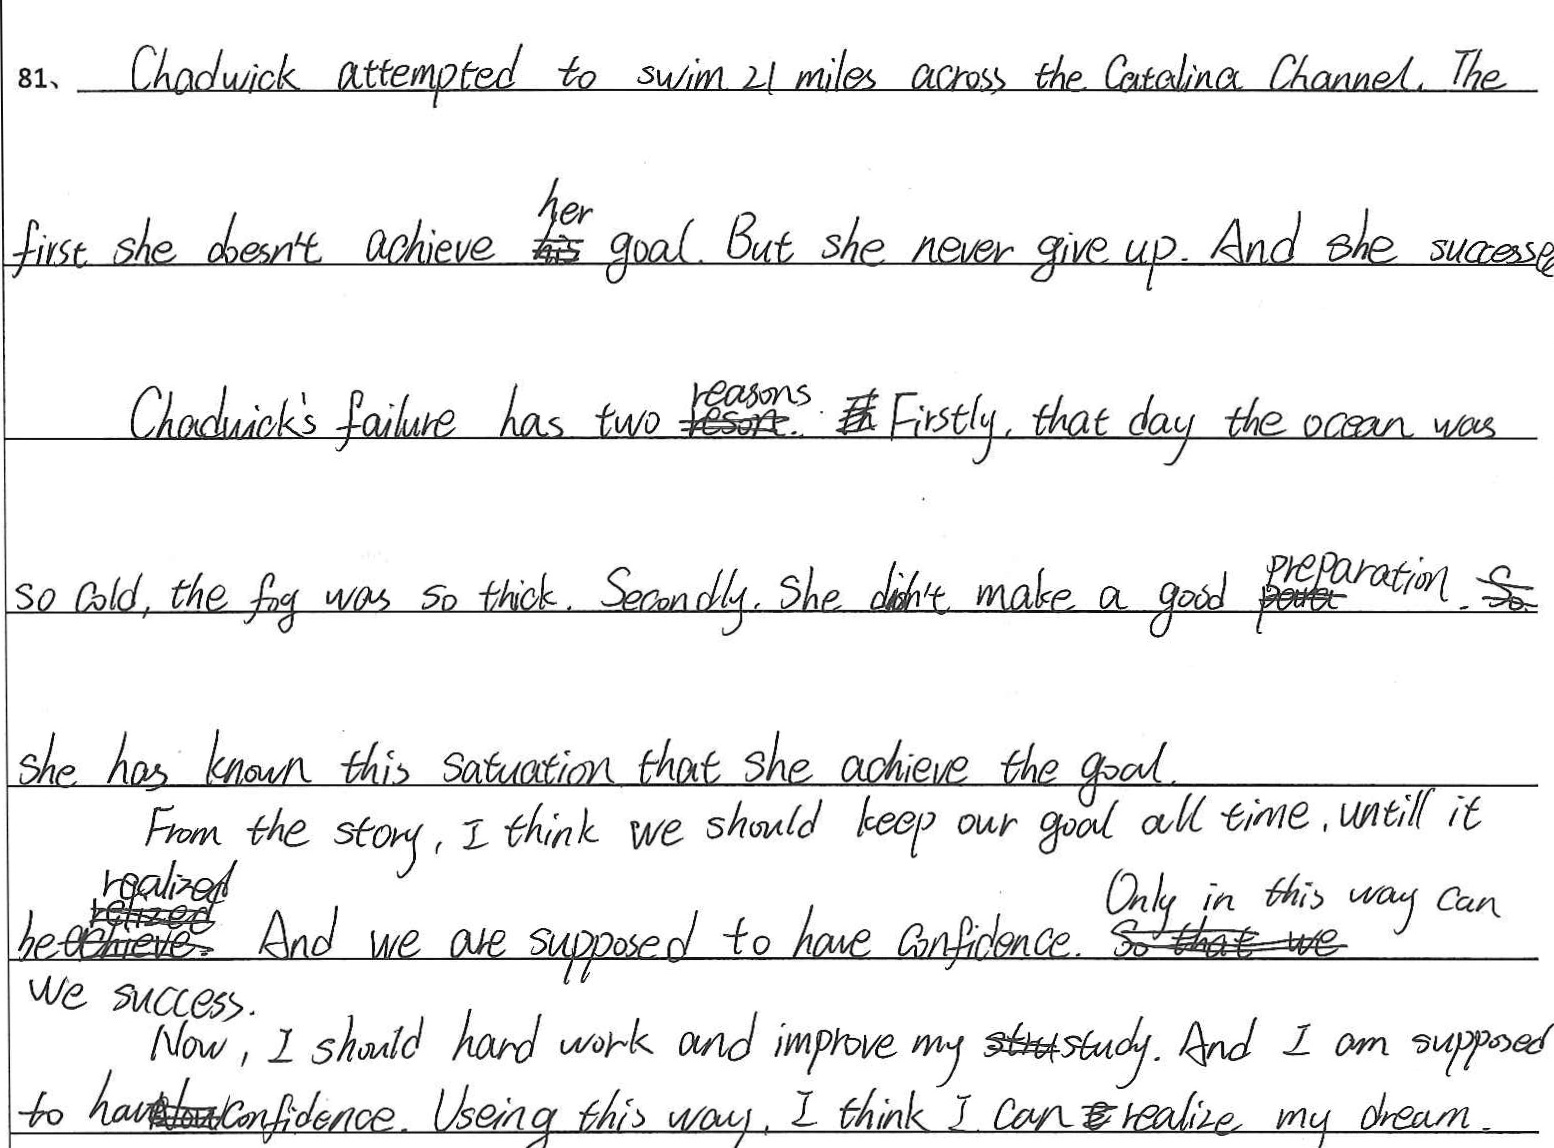 81、 Chadwick attempted to swim 21 miles across the Catalina Channel. The
first she doesn't achieve her goal. But she never give up. And she successe
Chadwick's failure has two reasons. Firstly, that day the ocean was
so cold, the fog was so thick. Secondly. She didn't make a good preparation.
she has known this satuation that she achieve the goal.
From the story, I think we should keep our goal all time, untill it
be realized And we are supposed to have confidence. Only in this way can
we success.
Now, I should hard work and improve my study. And I am supposed
to have confidence. Useing this way, I think I can realize my dream.